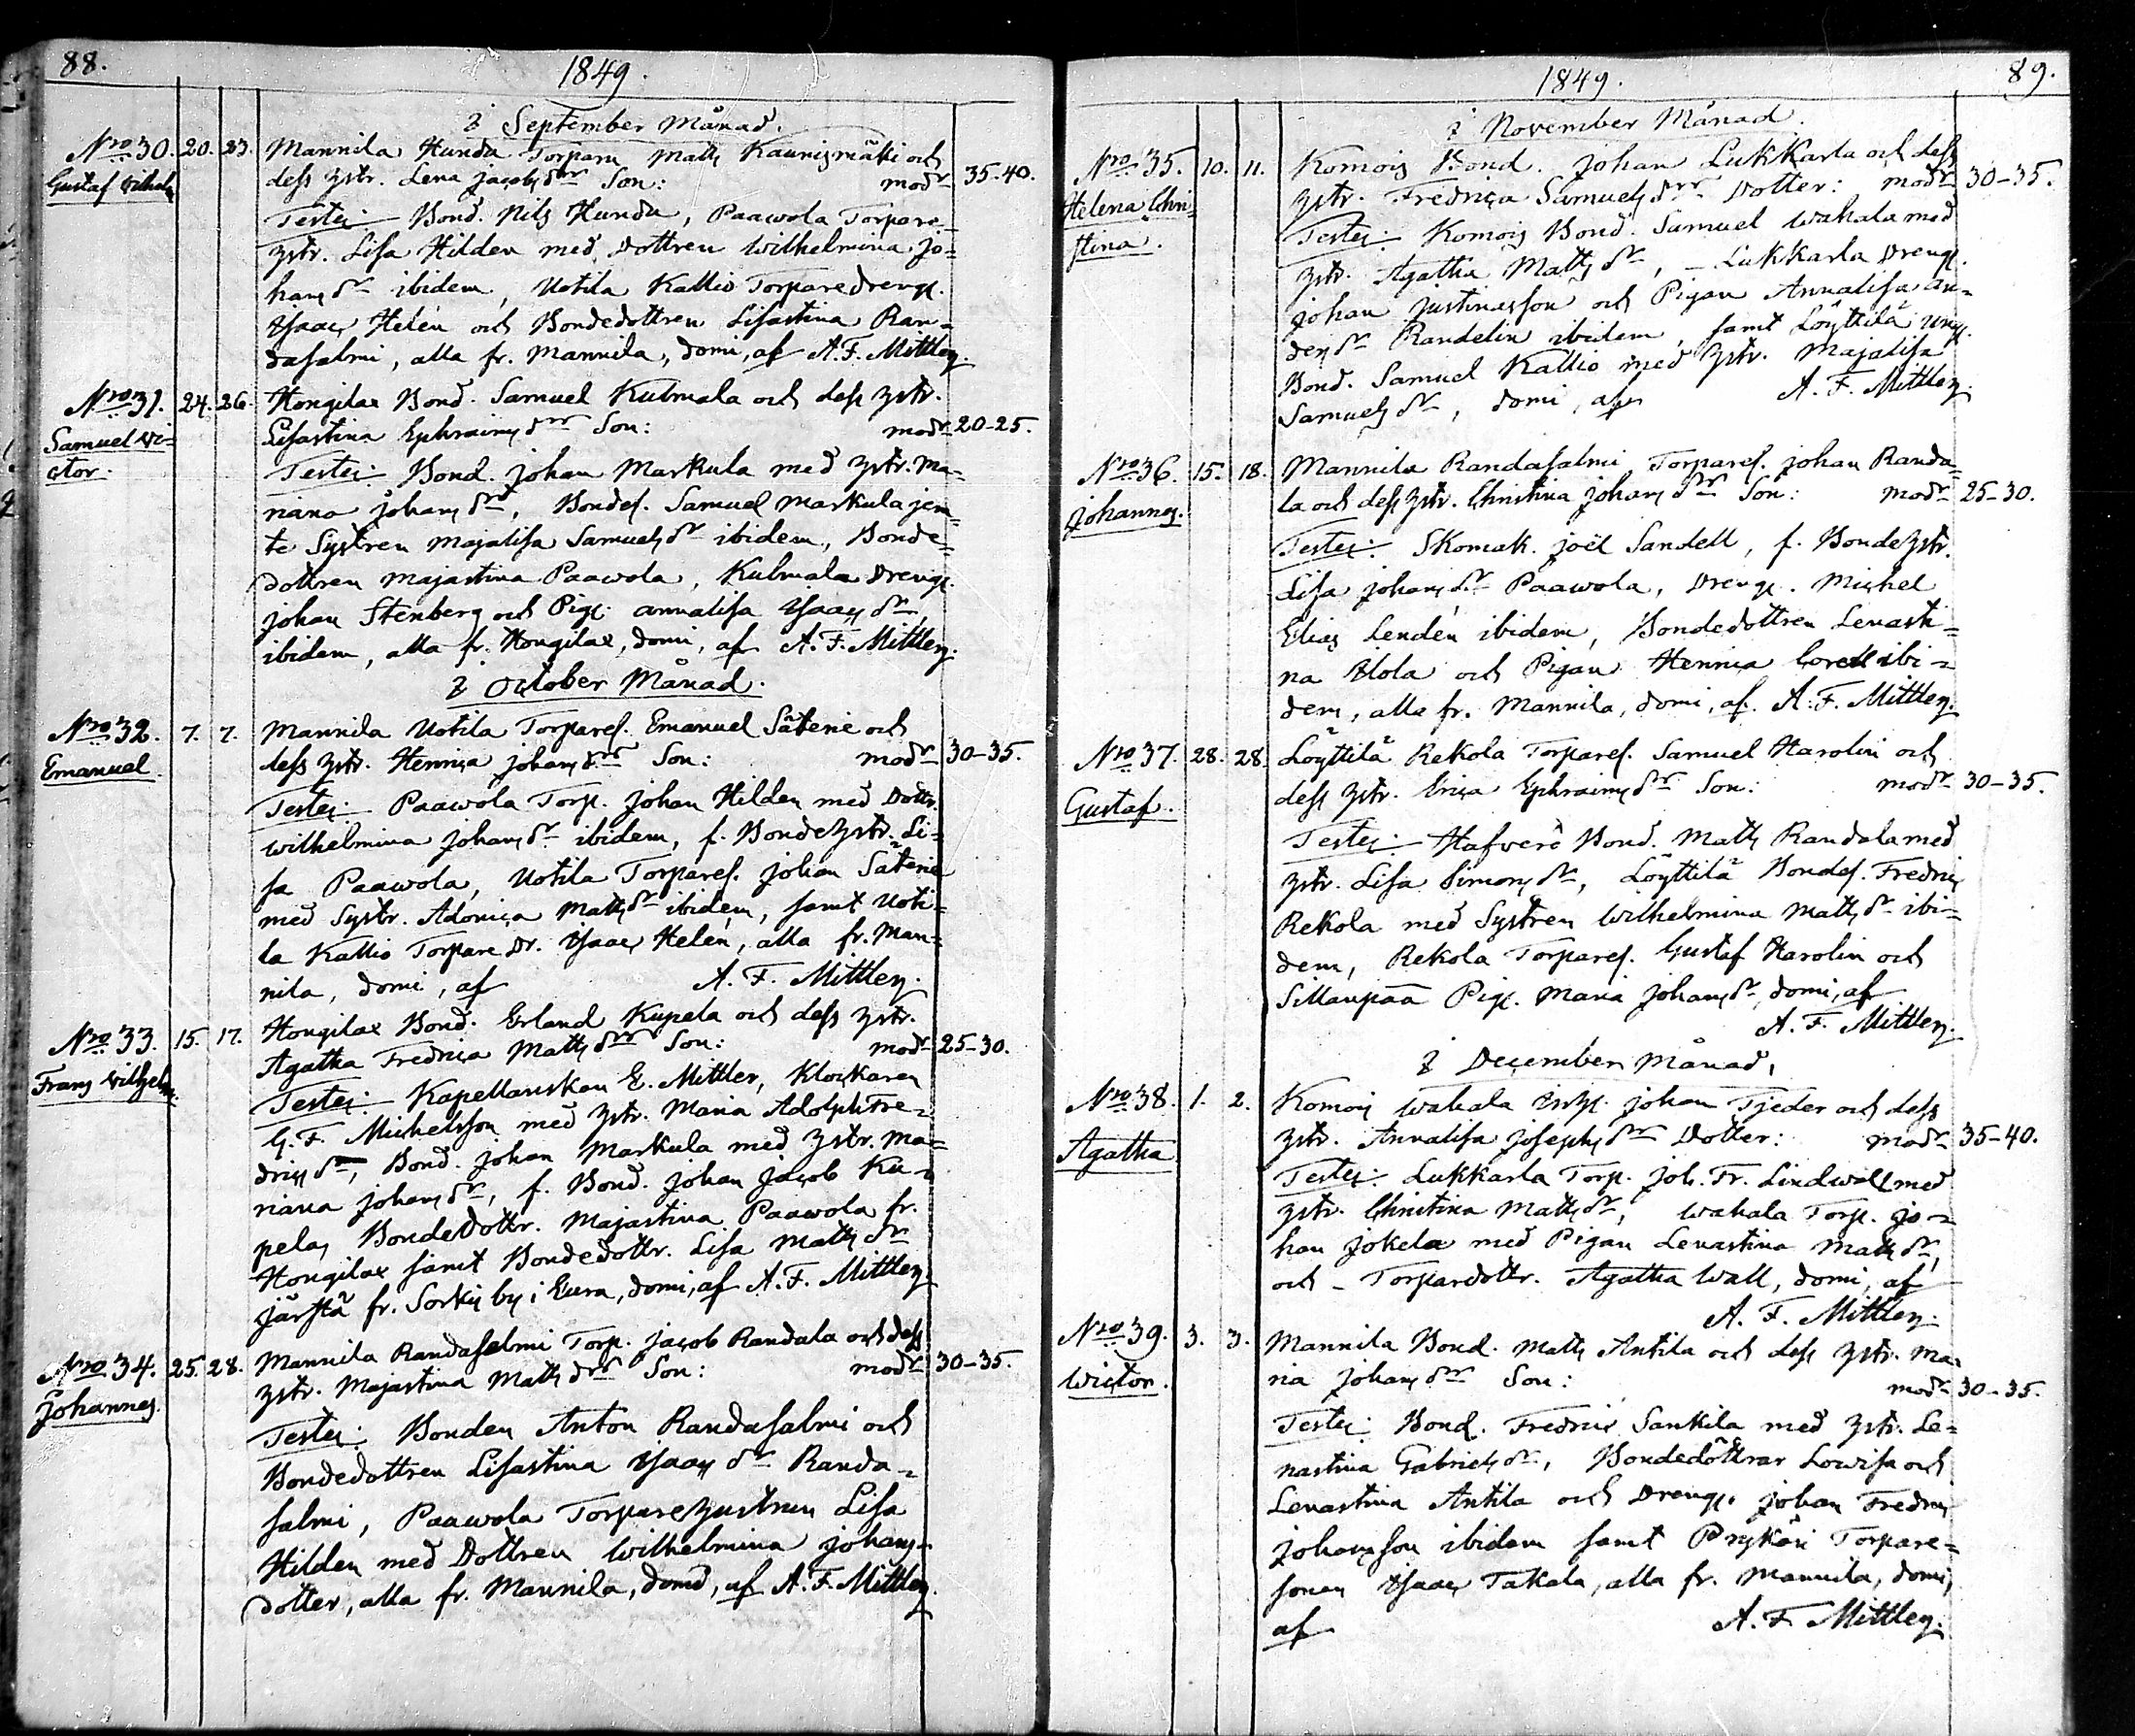 88.
1849.
I September Månad.
Nro 30. 20. 23. Mannila Hunda Torparn Matts Kaunismäki och
Gustaf Wilhelm dess hstr. Lena Jacobs dr Son: modr 35-40.
Testes: Bond. Nils Hunda, Paawola Torpare-
hstr. Lisa Hilden med Dottren Wilhelmina Jo=
hans dr ibidem, Uotila Kallio Torparedreng.
Isaac Helén och Bondedottren Lisastina Ran=
dasalmi, alla fr. Mannila, domi, af A. F. Mittler.
Nro 31. 24. 26. Hongilax Bond. Samuel Kulmala och dess hstr.
Samuel Wi= Lisastina Ephraims dr Son: modr 20-25.
ctor. Testes: Bond. Johan Markula med hstr. Ma=
riana Johans dr, Bondes. Samuel Markula jem=
te Systren Majalisa Samuels dr ibidem, Bonde=
dottren Majastina Paawola, Kulmala Dreng.
Johan Stenberg och Pig. Annalisa Isaacs dr
ibidem, alla fr. Hongilax, domi, af A. F. Mittler.
I October Månad.
Nro 32. 7. 7. Mannila Uotila Torpares. Emanuel Säterie och
Emanuel. dess hstr. Henrica Johans dr Son: modr 30-35.
Testes: Paawola Torp. Johan Hilden med Dottr.
Wilhelmina Johans dr ibidem, f. Bondehstr. Li=
sa Paawola, Uotila Torpares. Johan Säterie
med Systr. Adonica Matts dr ibidem, samt Uoti=
la Kallio Torpare Dr. Isaac Helén, alla fr. Man=
nila, domi, af A. F. Mittler.
Nro 33. 15. 17. Hongilax Bond. Erland Kupela och dess hstr.
Frans Wilhelm. Agatha Fredrica Matts dr Son: modr 25-30.
Testes: Kapellanskan E. Mittler, Klockaren
G. F. Michelsson med hstr. Maria Adolph Fre=
drics dr, Bond. Johan Markula med hstr. Ma=
riana Johans dr, f. Bond. Johan Jacob Ku=
pela, Bondedottr. Majastina Paawola fr.
Hongilax samt Bondedottr. Lisa Matts dr
Järstä fr. Sorkis by i Eura, domi, af A. F. Mittler.
Nro 34. 25. 28. Mannila Randasalmi Torp. Jacob Randala och dess
Johannes. hstr. Majastina Matts dr Son: modr 30-35.
Testes: Bonden Anton Randasalmi och
Bondedottren Lisastina Isaacs dr Randa=
salmi, Paawola Torparehustrun Lisa
Hilden med Dottren Wilhelmina Johans=
dotter, alla fr. Mannila, domi, af A. F. Mittler.
89.
1849.
I November Månad.
Nro 35. 10. 11. Komois Bond. Johan Lukkarla och dess
Helena Chri= hstr. Fredrica Samuels dr Dotter: modr 30-35.
stina. Testes: Komois Bond. Samuel Wahala med
hstr. Agatha Matts dr, – Lukkarla Dreng.
Johan Justinasson och Pigan Annalisa An=
ders dr Randelin ibidem, samt Löyttilä Ung.
Bond. Samuel Kallio med hstr. Majalisa
Samuels dr, domi, af A. F. Mittler.
Nro 36. 15. 18. Mannila Randasalmi Torpares. Johan Randa=
Johannes. la och dess hstr. Christina Johans dr Son: modr 25-30.
Testes: Skomak. Joël Sandell, f. Bondehstr.
Lisa Johans dr Paawola, Dreng. Michel
Elias Lendén ibidem, Bondedottren Lenasti=
na Ilola och Pigan Henrica Corell ibi=
dem, alla fr. Mannila, domi, af A. F. Mittler.
Nro 37. 28. 28. Löyttilä Rekola Torpares. Samuel Harolin och
Gustaf. dess hstr. Erica Ephraims dr Son: modr 30-35.
Testes: Hafverö Bond. Matts Randala med
hstr. Lisa Simons dr, Löyttilä Bondes. Fredric
Rekola med Systren Wilhelmina Matts dr ibi=
dem, Rekola Torpares. Gustaf Harolin och
Sillanpää Pig. Maria Johans dr, domi, af
A. F. Mittler.
I December Månad.
Nro 38. 1. 2. Komois Wahala Johan Tjeder och dess
Agatha hstr. Annalisa Josephs dr Dotter: modr 35-40.
Testes: Lukkarla Torp. Joh. Fr. Lindwall med
hstr. Christina Matts dr, Wahala Torp. Jo=
han Jokela med Pigan Lenastina Matts dr,
och – Torparedottr. Agatha Wall, domi, af
A. F. Mittler.
Nro 39. 3. 3. Mannila Bond. Matts Antila och dess hstr. Ma=
Wictor. ria Johans dr Son: modr 30-35.
Testes: Bond. Fredric Sankila med hstr. Le=
nastina Gabriels dr, Bondedöttrar Lowisa och
Lenastina Antila och Dreng. Johan Fredric
Johansson ibidem samt Prykäri Torpare=
sonen Isaac Takala, alla fr. Mannila, domi,
af A. F. Mittler.